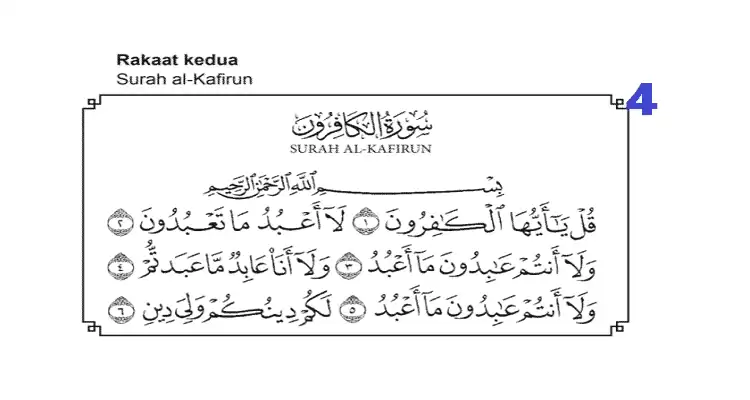 Rakaat kedua
Surah al-Kafirun
4
سُورَةُ الكَافِرُونَ
SURAH AL-KAFIRUN
بِسْمِ ٱللَّهِ ٱلرَّحْمَٰنِ ٱلرَّحِيمِ
قُلْ يَـٰٓأَيُّهَا ٱلْكَـٰفِرُونَ ١ لَآ أَعْبُدُ مَا تَعْبُدُونَ ٢
وَلَآ أَنتُمْ عَـٰبِدُونَ مَآ أَعْبُدُ ٣ وَلَآ أَنَا۠ عَابِدٌ مَّا عَبَدتُّمْ ٤
وَلَآ أَنتُمْ عَـٰبِدُونَ مَآ أَعْبُدُ ٥ لَكُمْ دِينُكُمْ وَلِىَ دِينِ ٦